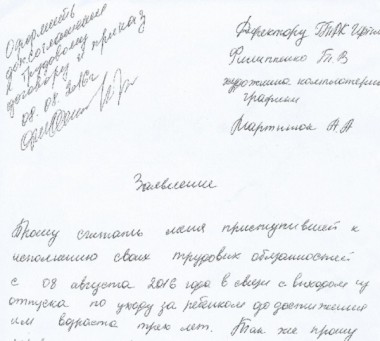 Оформить
допсоглашение
к Трудовому
договору и приказ
08.08.2016г
Директору
Филипченко Г. В
художника компьютерной
графики
Мартинюк А. А
Заявление
Прошу считать меня приступившей к
исполнению своих трудовых обязанностей
с 08 августа 2016 года в связи с выходом из
отпуска по уходу за ребенком до достижения
им возраста трех лет. Так же прошу